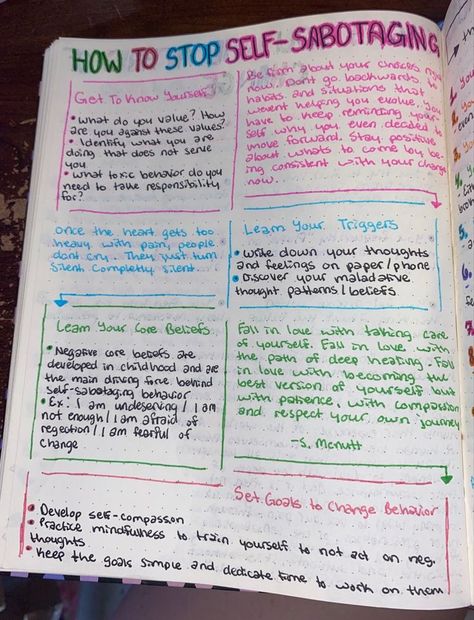 HOW TO STOP SELF-SABOTAGING
Get To Know Yourself
• What do you value? How
are you against these values?
• Identify what you are
doing that does not serve
you
• What toxic behavior do you
need to take responsibility
for?
Be firm about your choices
now. Dont go backwards
habits and situations that
werent helping you evolve. You
have to keep reminding your-
self why you even decided to
move forward. Stay positive
about whats to come by be-
ing consistent with your change
now.
Once the heart gets too
heavy with pain, people
dont cry. They just turn
silent. Completly silent...
Learn Your Triggers
• Write down your thoughts
and feelings on paper/phone
• Discover your maladative
thought patterns/beliefs
Learn Your Core Beliefs
• Negative core beliefs are
developed in childhood and are
the main driving force behind
self-sabotaging behavior
• Ex: I am undeserving/I am
not enough/I am afraid of
regection/I am fearful of
change
Fall in love with taking care
of yourself. Fall in love with
the path of deep healing. Fall
in love with becoming the
best version of yourself but
with patience, with compassion
and respect your own journey
-S. Mcnutt
Set Goals to Change Behavior
• Develop self-compassion
• Practice mindfulness to train yourself to not act on neg.
thoughts
• Keep the goals simple and dedicate time to work on them